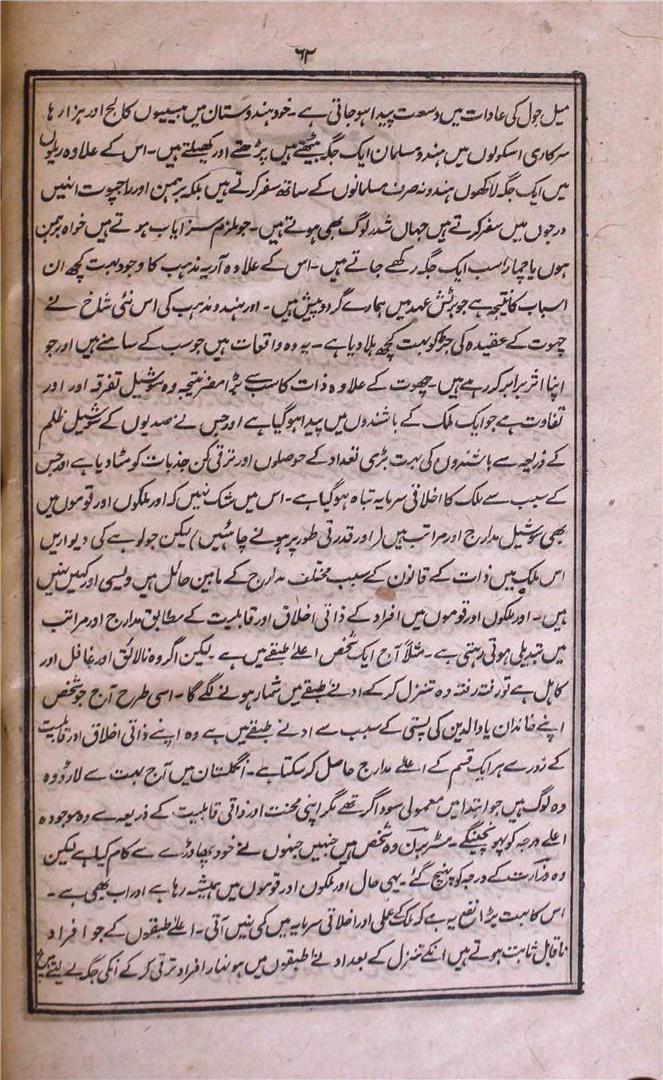 ۶۲
میل جول کی عادات میں وسعت پیدا ہو جاتی ہے۔ خود ہندوستان میں بیسیوں کالج اور ہزارہا
سرکاری اسکولوں میں ہندو مسلمان ایک جگہ بیٹھتے ہیں پڑھتے اور کھیلتے ہیں۔ اس کے علاوہ ریلوں
میں ایک جگہ لاکھوں ہندو نہ صرف مسلمانوں کے ساتھ سفر کرتے ہیں بلکہ برہمن اور راجپوت انہیں
درجوں میں سفر کرتے ہیں جہاں شدر لوگ بھی ہوتے ہیں۔ جو ملزم سزایاب ہوتے ہیں خواہ برہمن
ہوں یا چمار سب ایک جگہ رکھے جاتے ہیں۔ اس کے علاوہ آریہ مذہب کا وجود بہت کچھ ان
اسباب کا نتیجہ ہے جو برٹش عہد میں ہمارے گرد و پیش ہیں۔ اور ہندو مذہب کی اس نئی شاخ نے
چھوت کے عقیدہ کی جڑ کو بہت کچھ ہلا دیا ہے۔ یہ وہ واقعات ہیں جو سب کے سامنے ہیں اور جو
اپنا اثر برابر کر رہے ہیں۔ چھوت کے علاوہ ذات کا سب سے بڑا مضر نتیجہ وہ سوشیل تفرقہ اور اور
تفاوت ہے جو ایک ملک کے باشندوں میں پیدا ہو گیا ہے اور جس نے صدیوں کے سوشیل ظلم
کے ذریعہ سے باشندوں کی بہت بڑی تعداد کے حوصلوں اور ترقی کن جذبات کو مٹا دیا ہے اور جس
کے سبب سے ملک کا اخلاقی سرمایہ تباہ ہو گیا ہے۔ اس میں شک نہیں کہ اور ملکوں اور قوموں میں
بھی سوشیل مدارج اور مراتب ہیں (اور قدرتی طور پر ہونے چاہئیں) لیکن جو لوہے کی دیواریں
اس ملک میں ذات کے قانون کے سبب مختلف مدارج کے مابین حائل ہیں ویسی اور کہیں نہیں
ہیں۔ اور ملکوں اور قوموں میں افراد کے ذاتی اخلاق اور قابلیت کے مطابق مدارج اور مراتب
میں تبدیلی ہوتی رہتی ہے۔ مثلاً آج ایک شخص اعلےٰ طبقے میں ہے لیکن اگر وہ نالائق اور غافل اور
کاہل ہے تو رفتہ رفتہ وہ تنزل کر کے ادنےٰ طبقے میں شمار ہونے لگے گا۔ اسی طرح آج جو شخص
اپنے خاندان یا والدین کی پستی کے سبب سے ادنےٰ طبقے میں ہے وہ اپنے ذاتی اخلاق اور قابلیت
کے زور سے ہر ایک قسم کے اعلےٰ مدارج حاصل کر سکتا ہے۔ انگلستان میں آج بہت سے لارڈ وہ
وہ لوگ ہیں جو ابتدا میں معمولی سوداگر تھے مگر اپنی محنت اور ذاتی قابلیت کے ذریعہ سے وہ موجودہ
اعلےٰ درجہ کو پہونچینگے۔ مسٹر برن وہ شخص ہیں جنہیں جنہوں نے خود پھاوڑے سے کام کیا ہے لیکن
وہ وزارت کے درجہ کو پہنچ گئے۔ یہی حال اور ملکوں اور قوموں میں ہمیشہ رہا ہے اور اب بھی ہے۔
اس کا بہت بڑا نفع یہ ہے کہ ملک کے عملی اور اخلاقی سرمایہ میں کمی نہیں آتی۔ اعلےٰ طبقوں کے جو افراد
ناقابل ثابت ہوتے ہیں انکے تنزل کے بعد ادنےٰ طبقوں میں ہونہار افراد ترقی کر کے انکی جگہ لے لیتے ہیں